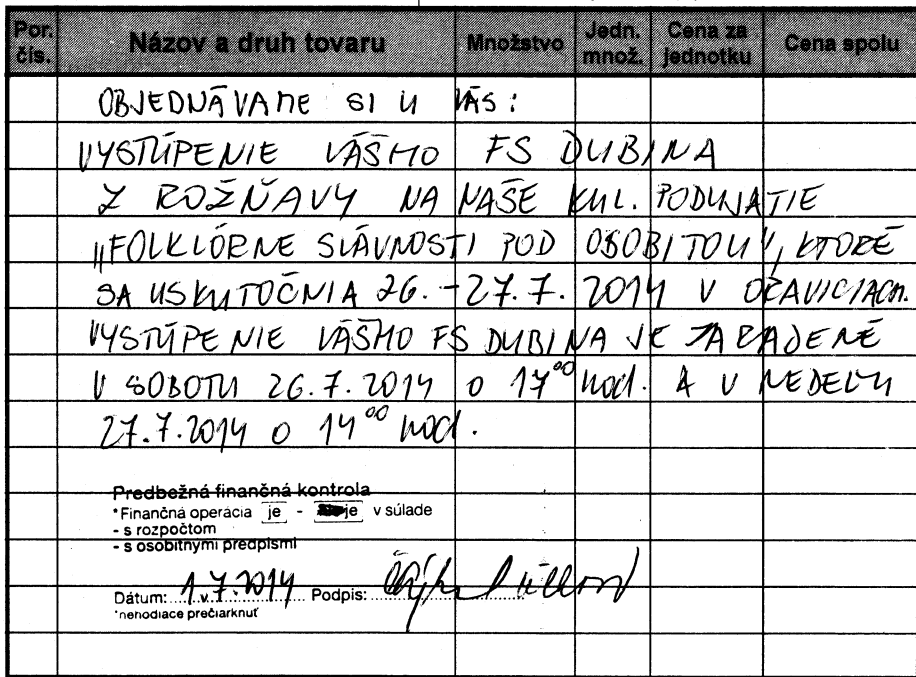 Por. čís. Názov a druh tovaru Množstvo Jedn. množ. Cena za jednotku Cena spolu
OBJEDNÁVAME SI U VÁS:
VYSTÚPENIE VÁŠHO FS DUBINA
Z ROŽŇAVY NA NAŠE KUL. PODUJATIE
„FOLKLÓRNE SLÁVNOSTI POD OSOBITOU“, KTORÉ
SA USKUTOČNIA 26.-27.7. 2014 V ORAVICIACH.
VYSTÚPENIE VÁŠHO FS DUBINA JE ZARADENÉ
V SOBOTU 26.7.2014 O 17⁰⁰ hod. A V NEDEĽU
27.7.2014 O 14⁰⁰ hod.
Predbežná finančná kontrola
*Finančná operácia je - nie je v súlade
- s rozpočtom
- s osobitnými predpismi
Dátum: 1.7.2014 Podpis:
*nehodiace prečiarknuť